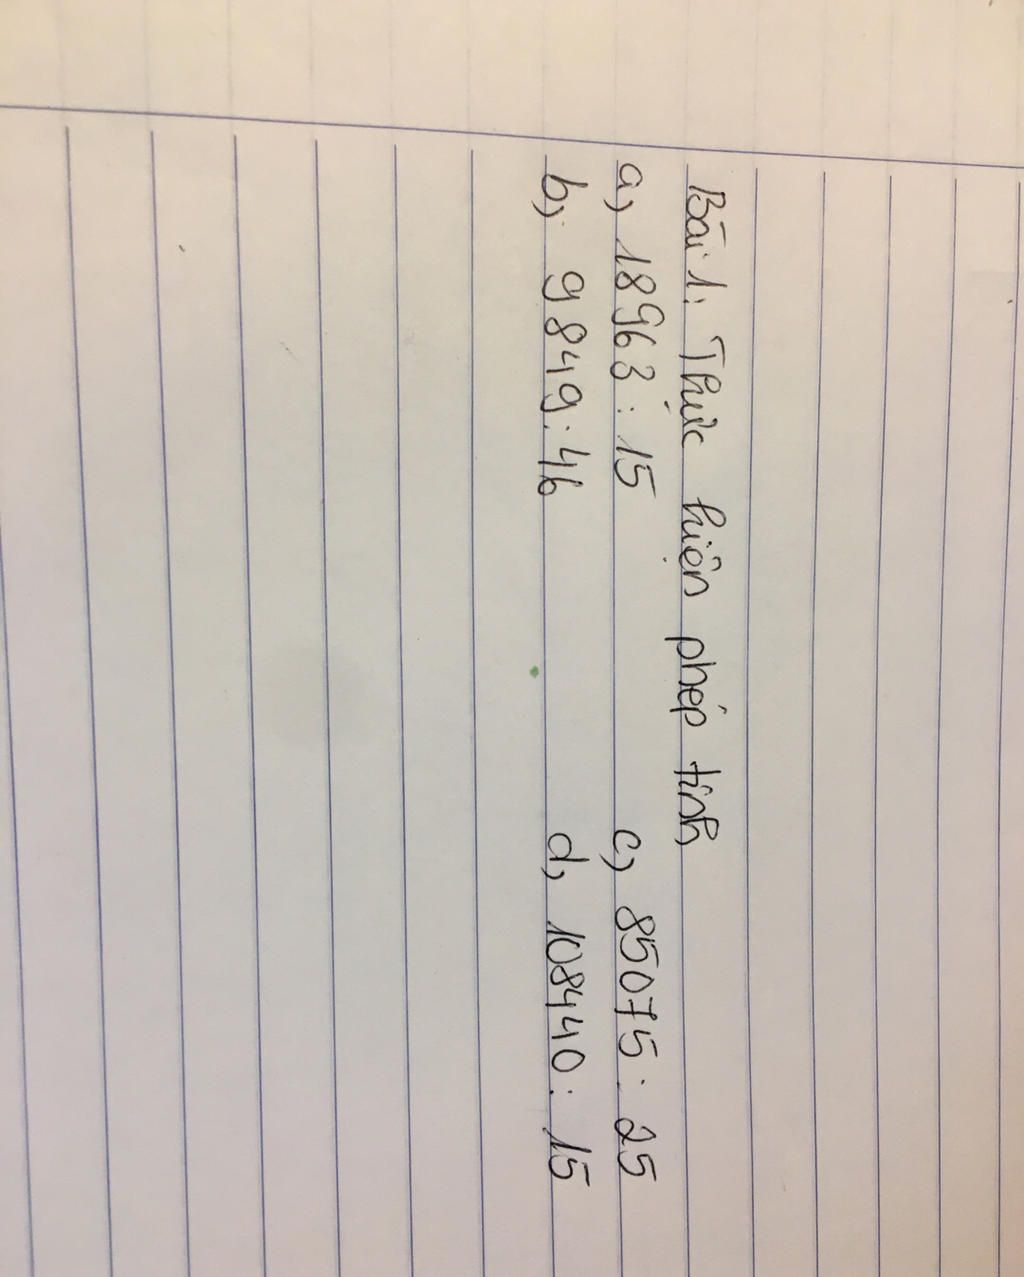 Bài 1: Thực hiện phép tính
a, 18963 : 15 c, 85075 : 25
b, 9849 : 46 d, 108440 : 15